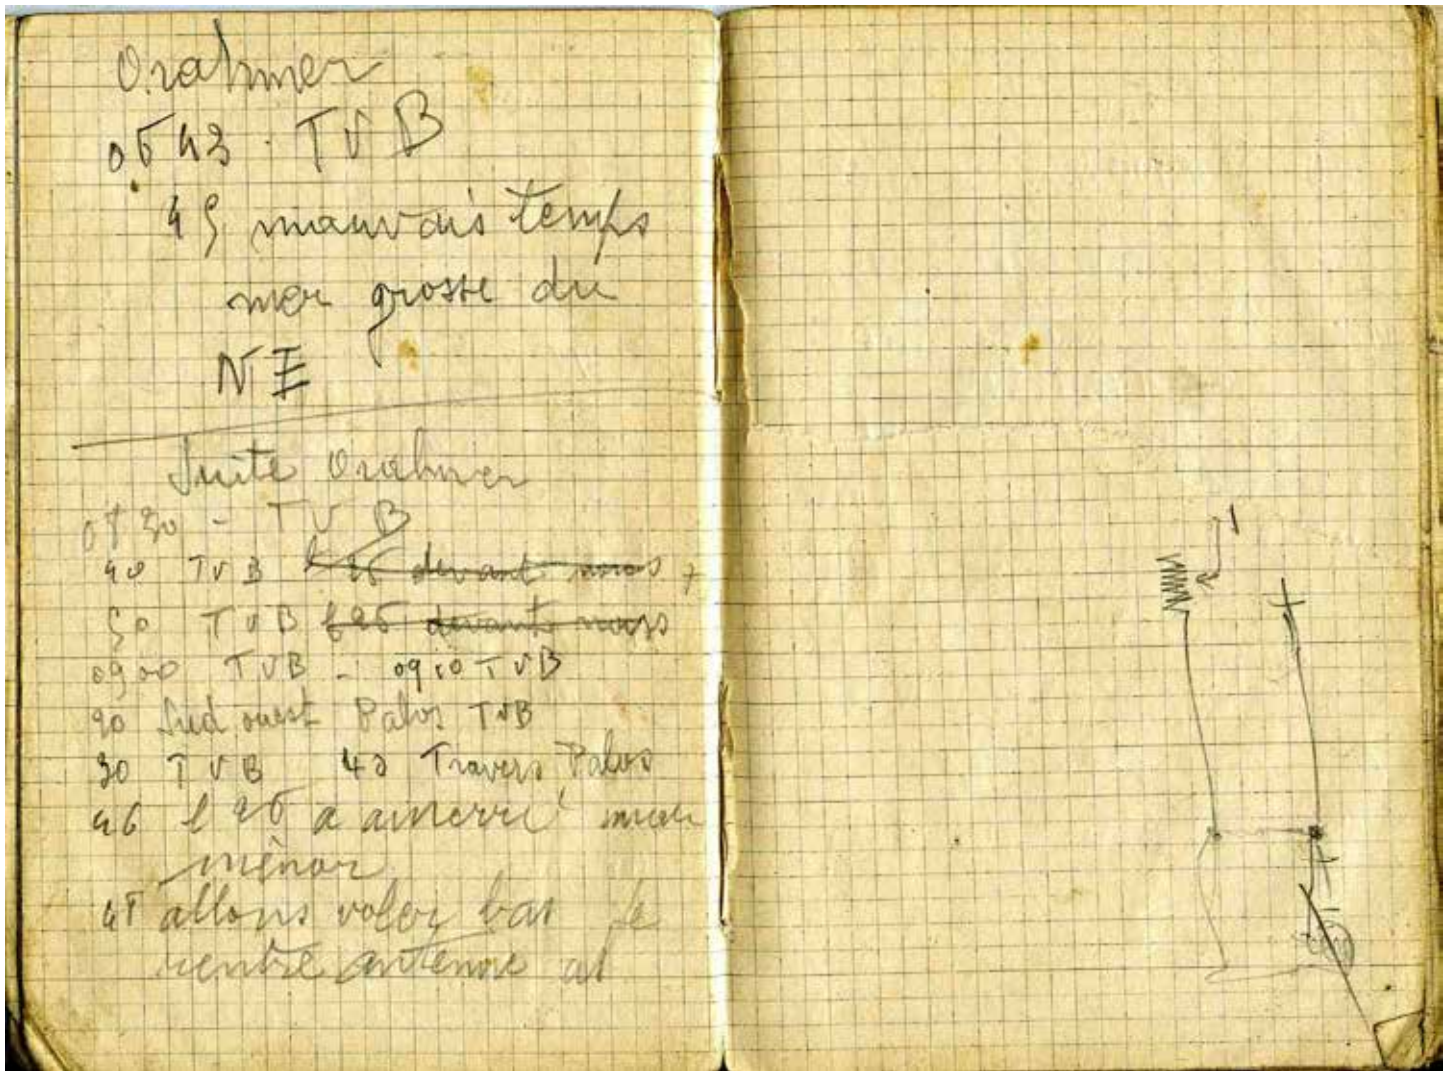 Orahmer
0543 . TVB
45 mauvais temps
mer grosse du
NE
Suite Orahmer
0830 - TVB
40 TVB l 26 devant nous
50 TVB l 26 devant nous
0900 TVB - 0910 TVB
20 Sud ouest Palos TVB
30 TVB 40 Travers Palos
46 l 26 a amerri
minor
48 allons voler bas je
rentre antenne